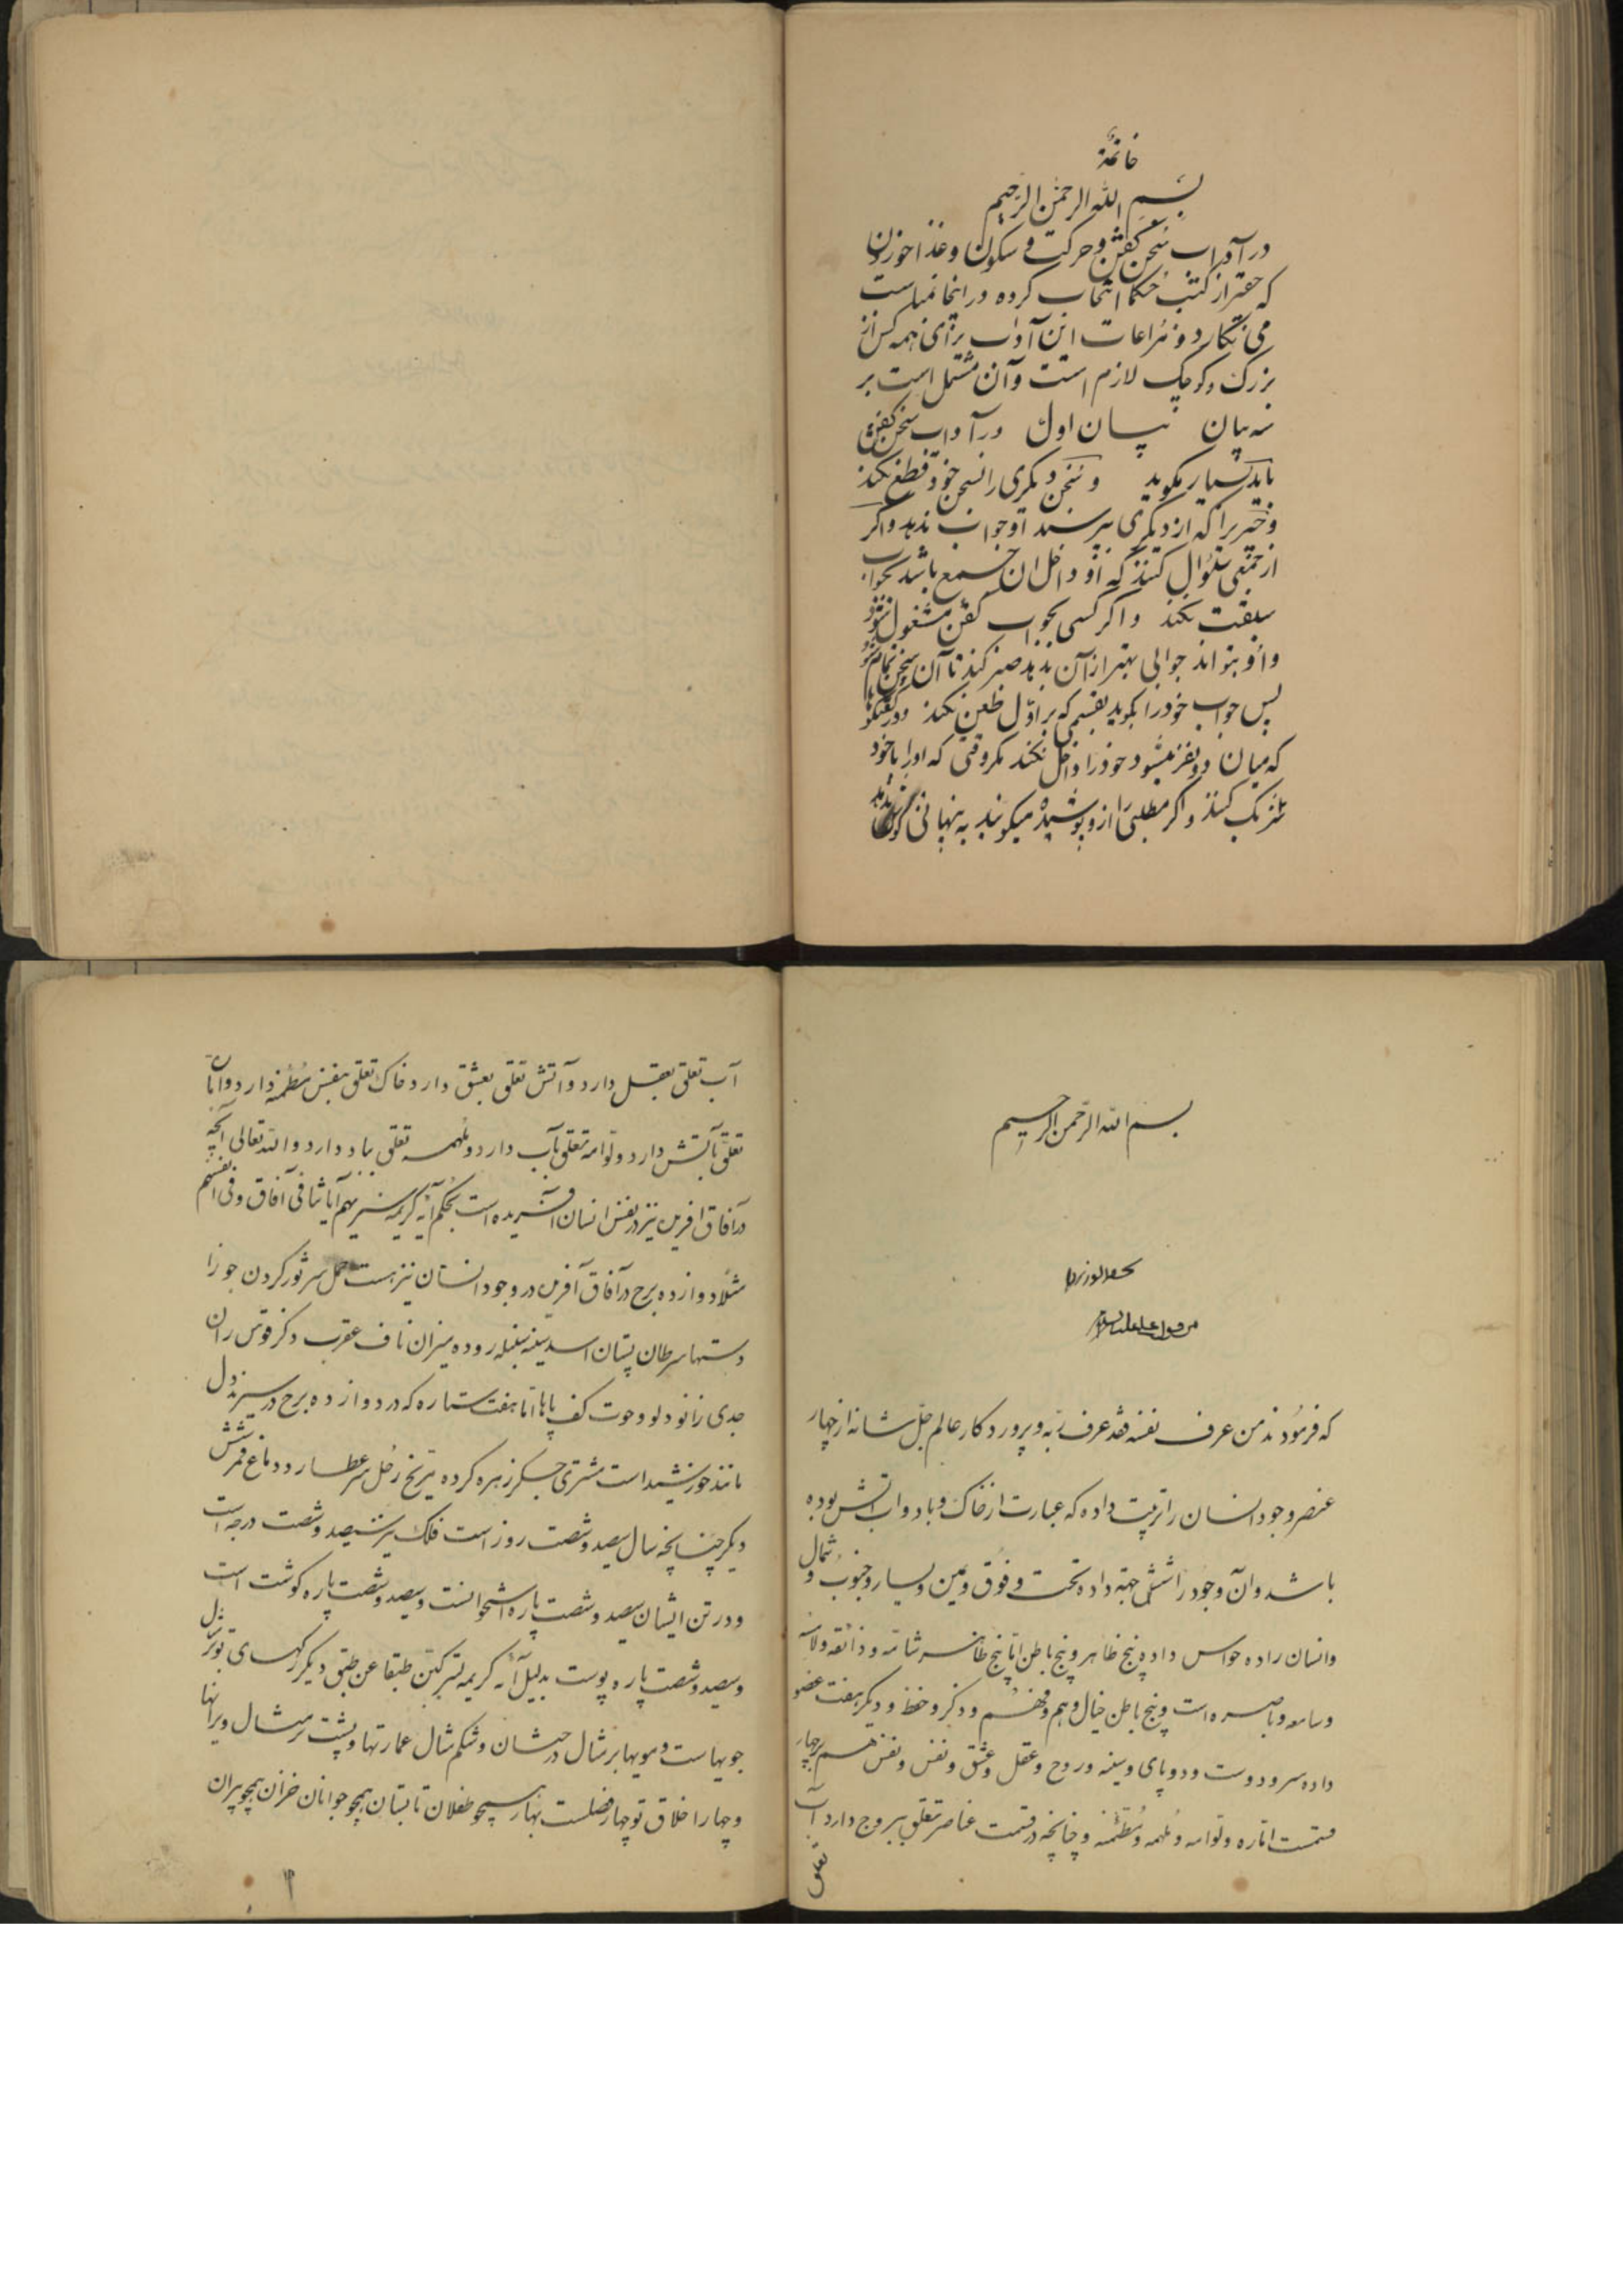 خاتمة
بسم الله الرحمن الرحیم
در آداب سخن گفتن و حرکت و سکون و غذا خوردن
که حقیر از کتب حکما انتخاب کرده در اینجا
می نکارد و مراعات این آداب برای همه کس از
بزرک و کوچک لازم است و آن مشتمل است بر
سه بیان بیان اول در آداب سخن گفتن
باید بسیار نکوید و سخن دیکری را بسخن خود قطع نکند
و چیزیرا که از دیکری بپرسند او جواب ندهد و اکر
از جمعی سئوال کنند که او داخل ان جمع باشد بجواب
سبقت نکند و اکر کسی بجواب گفتن مشغول شود
و او بتواند جوابی بهتر از آن بدهد صبر کند تا آن سخن تمام شود
پس جواب خود را بکوید بقسمی که بر اوّل طعن نکند و در گفتگوها
که میان دو نفر میشود خود را داخل نکند مکر وقتی که او را با خود
شریک کنند و اکر مطلبی را از و پوشیده میکویند به پنهانی کوش ندهد
بسم الله الرحمن الرحیم
من قول علی علیه السلام
که فرمودند من عرف نفسه فقد عرف ربه و پروردکار عالم جل شانه از چهار
عنصر وجود انسان را تربیت داده که عبارت از خاک و باد و اب و اتش بوده
باشد و آن وجود را شش جهة داده تحت و فوق و یمین و یسار و جنوب و شمال
و انسان را ده حواس داده پنج ظاهر و پنج باطن امّا پنج ظاهر شامّه و ذائقه و لامسه
و سامعه و باصره است و پنج باطن خیال و وهم و فهم و ذکر و حفظ و دیکر هفت عضو
داده سر و دو دست و دو پای و سینه و روح و عقل و عشق و نفس و نفس هم بر چهار
قسمت امّاره و لوّامه و ملهمه و مطمئنه و چنانچه در قسمت عناصر تعلق ببروج دارد آب
تعلق
آب تعلق بعقل دارد و آتش تعلق بعشق دارد خاک تعلق بنفس مطمئنه دارد و امّاره
تعلّق بآتش دارد و لوّامه تعلق بآب دارد و ملهمه تعلق بباد دارد و الله تعالی آنچه
در آفاق افریده نیز در نفس انسان آفریده است بحکم آیه کریمه سنریهم آیاتنا فی آفاق و فی انفسهم
مثلا دوازده برج در آفاق آفریده در وجود انسان نیز هست حمل سر ثور کردن جوزا
دستها سرطان پستان اسد سینه سنبله روده میزان ناف عقرب ذکر قوس ران
جدی زانو دلو و حوت کف پاها امّا هفت ستاره که در دوازده برج در سیرند دل
مانند خورشید است مشتری جکر زهره کرده مریخ زحل سر عطارد و دماغ قمر شش
دیکر چنانچه سال سیصد و شصت روز است فلک سیصد و شصت درجه است
و در تن ایشان سیصد و شصت پاره استخوانست و سیصد و شصت پاره کوشت است
و سیصد و شصت پاره پوست بدلیل آیه کریمه لترکبنّ طبقا عن طبق دیکر رکهای تو بر مثال
جویهاست و مویها بر مثال درختان و شکم مثال عمارتها و پشت بر مثال ویرانها
و چهار اخلاق تو چهار فصلست بهار همچو طفلان تابستان همچو جوانان خزان همچو پیران